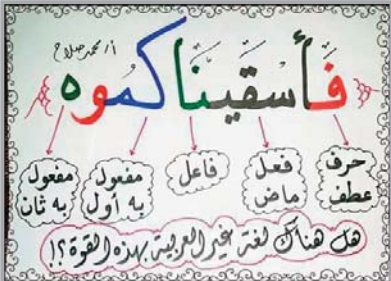 أ/محمد صلاح
فَأَسقَينَاكُموه
حرف عطف
فعل ماض
فاعل
مفعول به أول
مفعول به ثان
هل هناك لغة غير العربية بهذه القوة؟!